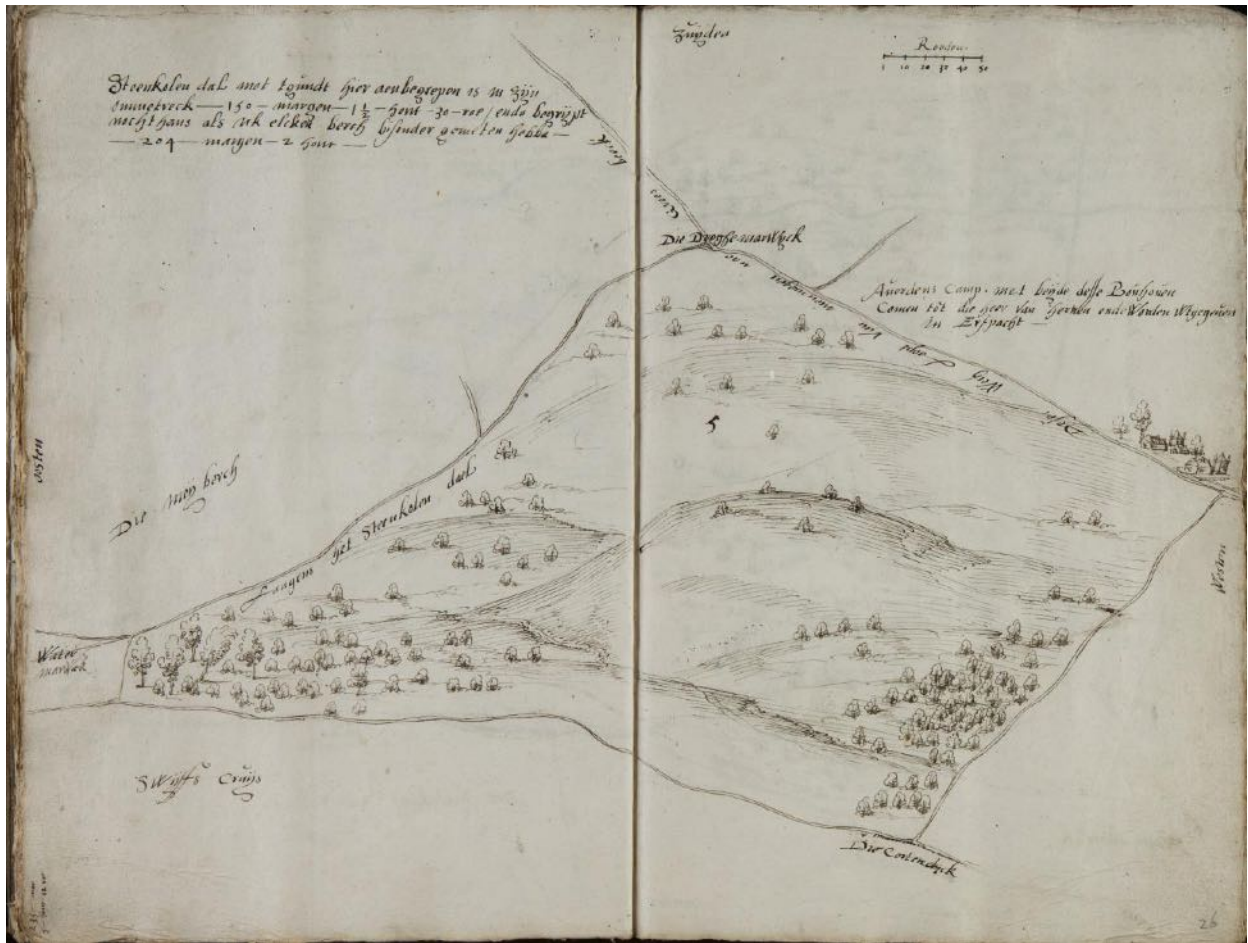 Steenkolen dal met tgundt hier aenbegrepen is in zijn
ommetreck — 150 — margen — 1½ — hont - 30 - roe / ende begrijpt
nochthans als ick elcken berch bisonder gemeten hebbe —
— 204 — margen — 2 hont —
Zuyden
Rooden
1 10 20 30 40 50
Die Droghe marWyck
Auerdens Camp. met beyde desse Bouhouen
Comen tot die heer van hernen ende Worden Wtgegeuen
in Erfpacht
Desen Weg Loopt Van
5
Oosten
Die meij berch
Laagem het Steenkolen dael
Westen
Water
marwick
3 Wijffs Cruijs
Die Coelendyck
26